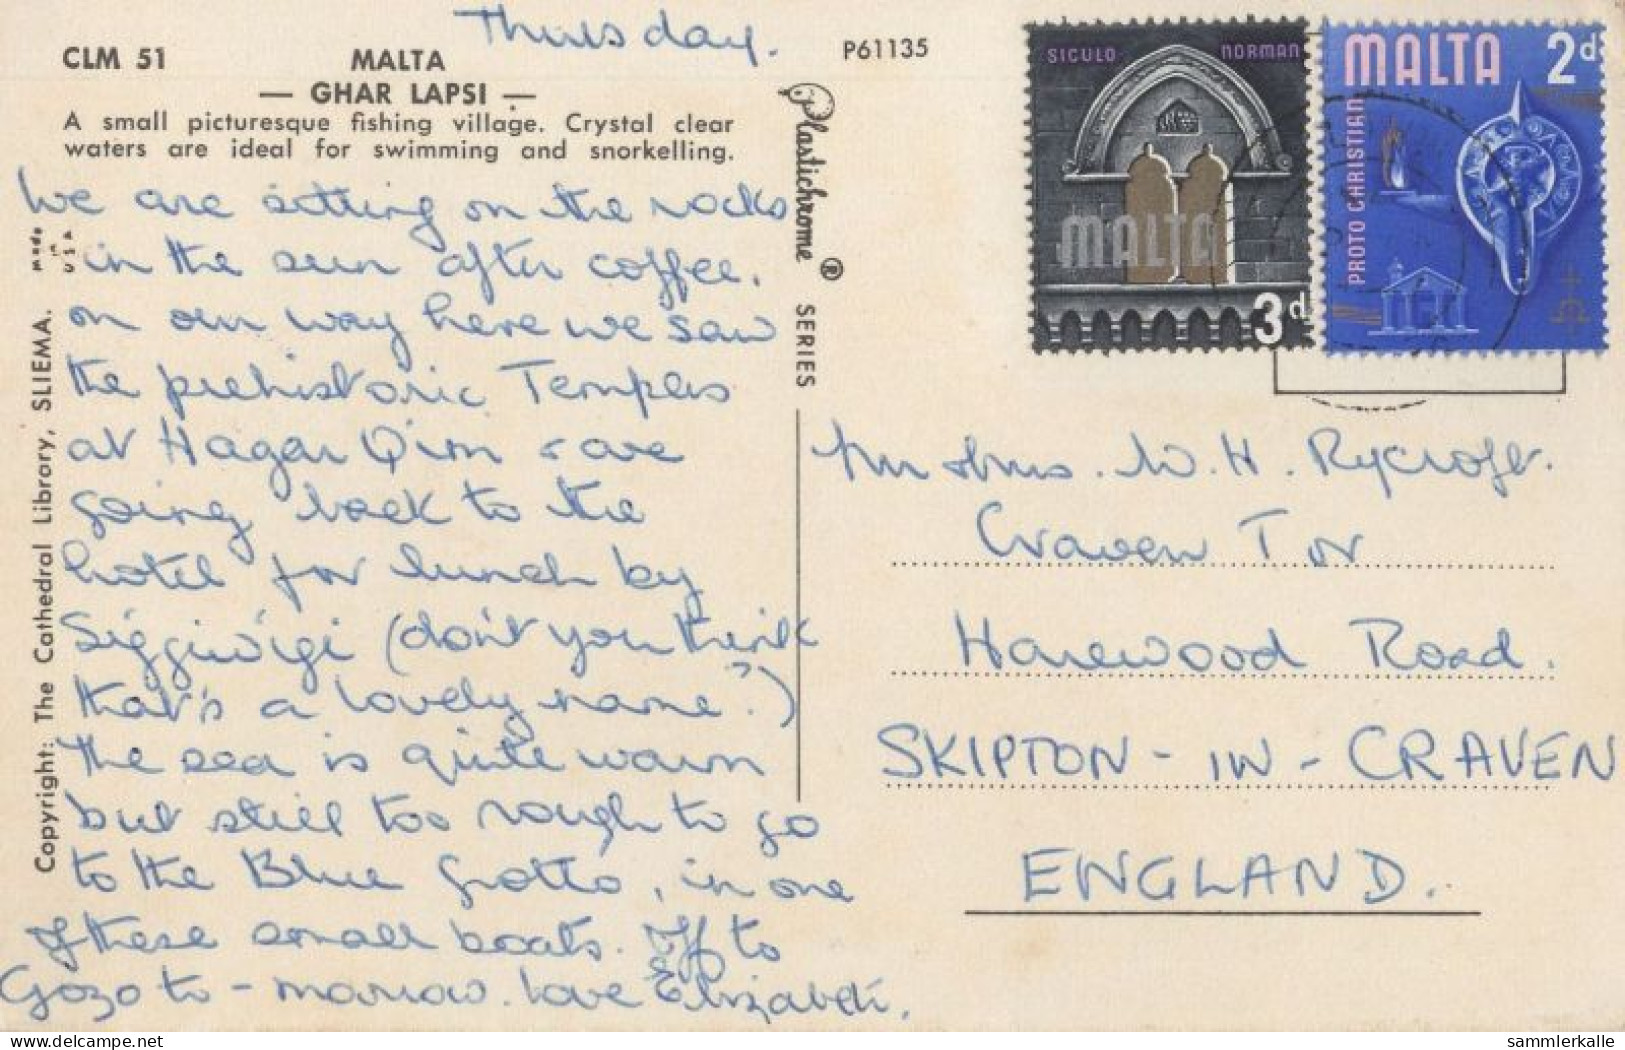 Thursday.
CLM 51
MALTA
— GHAR LAPSI —
A small picturesque fishing village. Crystal clear
waters are ideal for swimming and snorkelling.
We are sitting on the rocks
in the sun after coffee.
on our way here we saw
the prehistoric Temples
at Hagar Qim & are
going back to the
hotel for lunch by
Siggiewigi (don't you think
that's a lovely name?)
The sea is quite warm
but still too rough to go
to the Blue Grotto, in one
of these small boats. Off to
Gozo to-morrow. Love Elizabeth.
made in USA
Copyright: The Cathedral Library, SLIEMA.
Plastichrome ® SERIES
P61135
SICULO NORMAN
MALTA
3d
MALTA 2d
PROTO CHRISTIAN
Mr & Mrs. W. H. Rycroft.
Craven Tor
Harewood Road.
SKIPTON-IN-CRAVEN
ENGLAND.
sammlerkalle